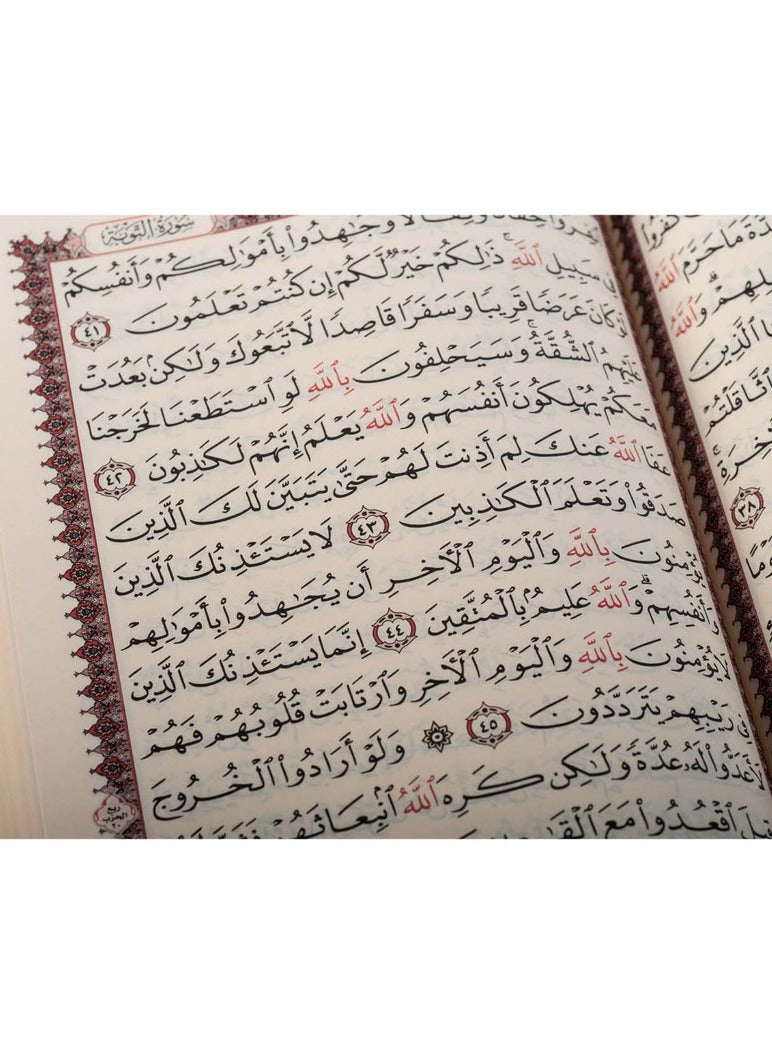 سُورَةُ التَّوْبَةِ
وَجَٰهِدُوا۟ بِأَمْوَٰلِكُمْ وَأَنفُسِكُمْ
فِى سَبِيلِ ٱللَّهِ ۚ ذَٰلِكُمْ خَيْرٌ لَّكُمْ إِن كُنتُمْ تَعْلَمُونَ ٤١
كَانَ عَرَضًا قَرِيبًا وَسَفَرًا قَاصِدًا لَّٱتَّبَعُوكَ وَلَٰكِنۢ بَعُدَتْ
عَلَيْهِمُ ٱلشُّقَّةُ ۚ وَسَيَحْلِفُونَ بِٱللَّهِ لَوِ ٱسْتَطَعْنَا لَخَرَجْنَا
مَعَكُمْ يُهْلِكُونَ أَنفُسَهُمْ وَٱللَّهُ يَعْلَمُ إِنَّهُمْ لَكَٰذِبُونَ ٤٢
عَفَا ٱللَّهُ عَنكَ لِمَ أَذِنتَ لَهُمْ حَتَّىٰ يَتَبَيَّنَ لَكَ ٱلَّذِينَ
صَدَقُوا۟ وَتَعْلَمَ ٱلْكَٰذِبِينَ ٤٣ لَا يَسْتَـْٔذِنُكَ ٱلَّذِينَ
يُؤْمِنُونَ بِٱللَّهِ وَٱلْيَوْمِ ٱلْءَاخِرِ أَن يُجَٰهِدُوا۟ بِأَمْوَٰلِهِمْ
وَأَنفُسِهِمْ ۗ وَٱللَّهُ عَلِيمٌۢ بِٱلْمُتَّقِينَ ٤٤ إِنَّمَا يَسْتَـْٔذِنُكَ ٱلَّذِينَ
لَا يُؤْمِنُونَ بِٱللَّهِ وَٱلْيَوْمِ ٱلْءَاخِرِ وَٱرْتَابَتْ قُلُوبُهُمْ فَهُمْ
فِى رَيْبِهِمْ يَتَرَدَّدُونَ ٤٥ ۞ وَلَوْ أَرَادُوا۟ ٱلْخُرُوجَ
لَأَعَدُّوا۟ لَهُۥ عُدَّةً وَلَٰكِن كَرِهَ ٱللَّهُ ٱنۢبِعَاثَهُمْ
ٱقْعُدُوا۟ مَعَ
ربع الحزب ٢٠
مَا حَرَّمَ ٱللَّهُ
وَٱللَّهُ
ٱلَّذِينَ
ٱثَّاقَلْتُمْ
٣٨